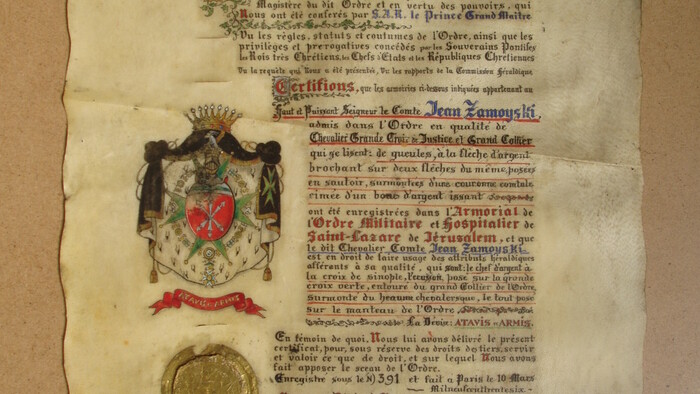 Magistère du dit Ordre et en vertu des pouvoirs, qui
Nous ont été conférés par S.A.R. le Prince Grand Maître
Vu les règles, statuts et coutumes de l'Ordre, ainsi que les
privilèges et prerogatives concédés par les Souverains Pontifes
les Rois très Chrétiens, les Chefs d'Etats et les Républiques Chrétiennes
Vu la requête qui Nous a été présentée, Vu les rapports de la Commission Héraldique
Certifions, que les armoiries ci-dessous appartenant au
Haut et Puissant Seigneur le Comte Jean Zamoyski,
admis dans l'Ordre en qualité de
Chevalier Grande Croix de Justice et Grand Collier
qui se lisent: de gueules, à la flèche d'argent
brochant sur deux flèches du même, posées
en sautoir, surmontées d'une couronne comtale
cimée d'un bouc d'argent issant
ont été enregistrées dans l'Armorial de
l'Ordre Militaire et Hospitalier de
Saint-Lazare de Jérusalem, et que
le dit Chevalier Comte Jean Zamoyski
est en droit de faire usage des attributs héraldiques
afférents à sa qualité, qui sont: le chef d'argent à
la croix de sinople, l'ecusson, posé sur la grande
croix verte, entouré du grand Collier de l'Ordre,
surmonté du heaume chevaleresque, le tout posé
sur le manteau de l'Ordre,
La Devise: ATAVIS ARMIS.
ATAVIS ARMIS
En témoin de quoi, Nous lui avons délivré le présent
certificat, pour, sous réserve des droits de tiers, servir
et valoir ce que de droit, et sur lequel Nous avons
fait apposer le sceau de l'Ordre.
Enregistré sous le N) 391 et fait a Paris le 10 Mars